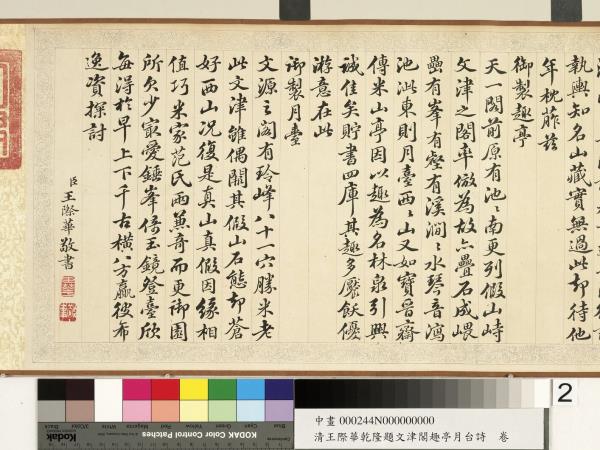 執輿知名山藏實無過此却待他
年枕葄茲
御製趣亭
天一閣前原有池〻南更列假山峙
文津之閣率倣為故亦疊石成嵔
壘有峯有壑有溪澗〻水琴音瀉
池此東則月臺西〻山又如寶晉齋
傳米山亭因以趣為名林泉引興
誠佳矣貯書四庫其趣多饜飫優
游意在此
御製月臺
文源之閣有玲峰八十一穴勝米老
此文津雖偶闕其假山石態却蒼
好西山況復是真山真假因緣相
值巧米家范氏兩兼奇而更御園
所欠少最愛錘峯倚玉鏡登臺欣
每得於早上下千古橫八方贏彼布
逸資探討
臣王際華敬書
KODAK Color Control Patches
Kodak
Blue
Cyan
Green
Yellow
Red
Magenta
White
3/Color
Black
2
中畫 000244N000000000
清王際華乾隆題文津閣趣亭月台詩 卷